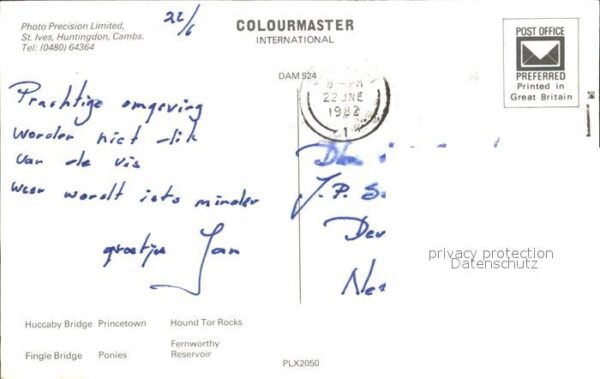 Photo Precision Limited,
St. Ives, Huntingdon, Cambs.
Tel: (0480) 64364
22/6
COLOURMASTER
INTERNATIONAL
POST OFFICE
PREFERRED
Printed in
Great Britain
DAM 524
8 - PM
22 JNE
1982
1
Prachtige omgeving
worden niet dik
van de vis
weer wordt iets minder
groetjes Jan
J. P. S
Der
Ne
privacy protection
Datenschutz
Huccaby Bridge Princetown Hound Tor Rocks
Fingle Bridge Ponies Fernworthy
Reservoir
PLX2050